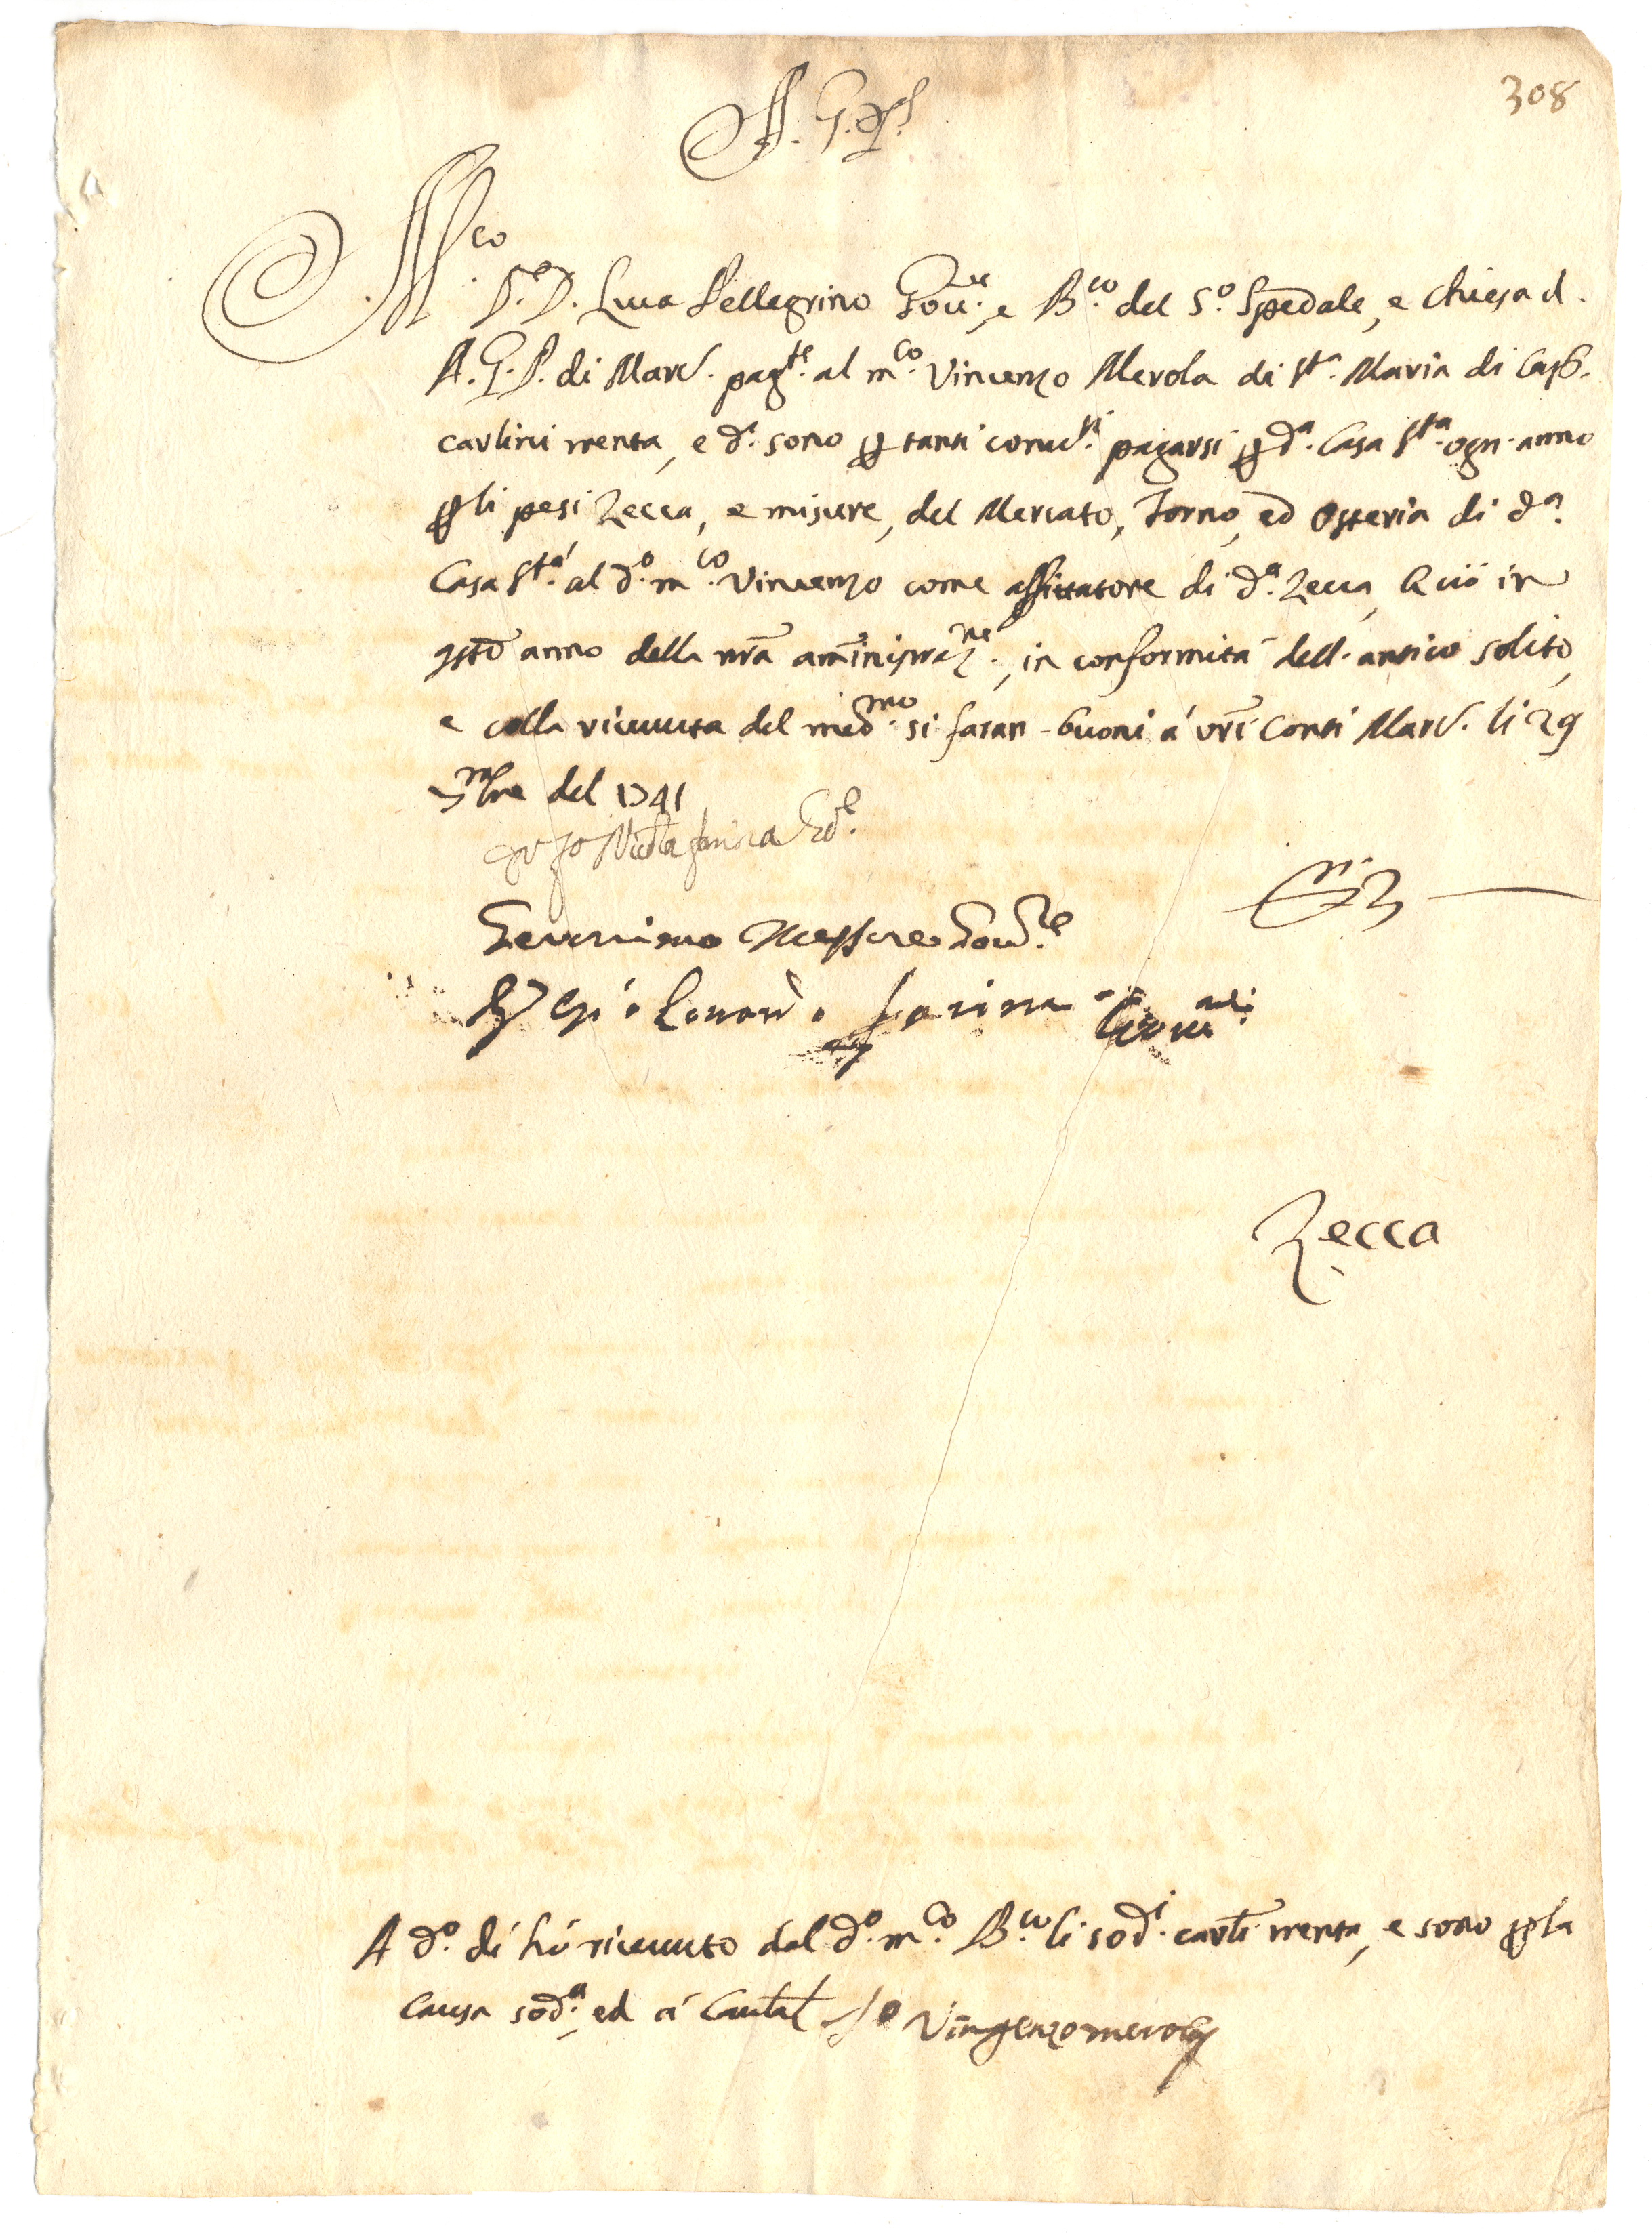 308
A. G. P.
M.co
D.r D. Luca Pellegrino Gou.re, e B.co del S.o Spedale, e Chiesa d.
A. G. P. di Marc. pag.te al m.co Vincenzo Merola di S.ta Maria di Cap.
carlini trenta, e d.i sono p tanti conue.ti pagarsi p d.a Casa S.ta ogn'anno
p li pesi Zecca, e misure, del Mercato, Forno, ed Osteria di d.a
Casa S.ta al d.o m.co Vincenzo come affittatore di d.a Zecca, e ciò in
qsto anno della nra aministraz.ne, in conformità dell'antico solito,
e colla riceuuta del med.mo si faran buoni à vri Conti Marc. li 29
bre del 1741
Io Nicola
Geronimo Messore Gou.re
Farina Gou.re
Zecca
A d.o dì hò riceuuto dal d.o m.co B.co li sod.i carli trenta, e sono p la
causa sod.a, ed à Cautel Io Vingenzo merola